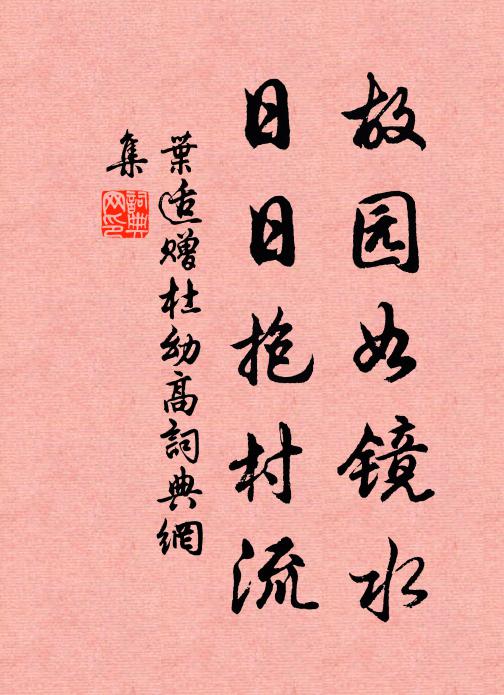 故园如镜水
日日抱村流
葉适赠杜幼高詞典網
集
詞典网印